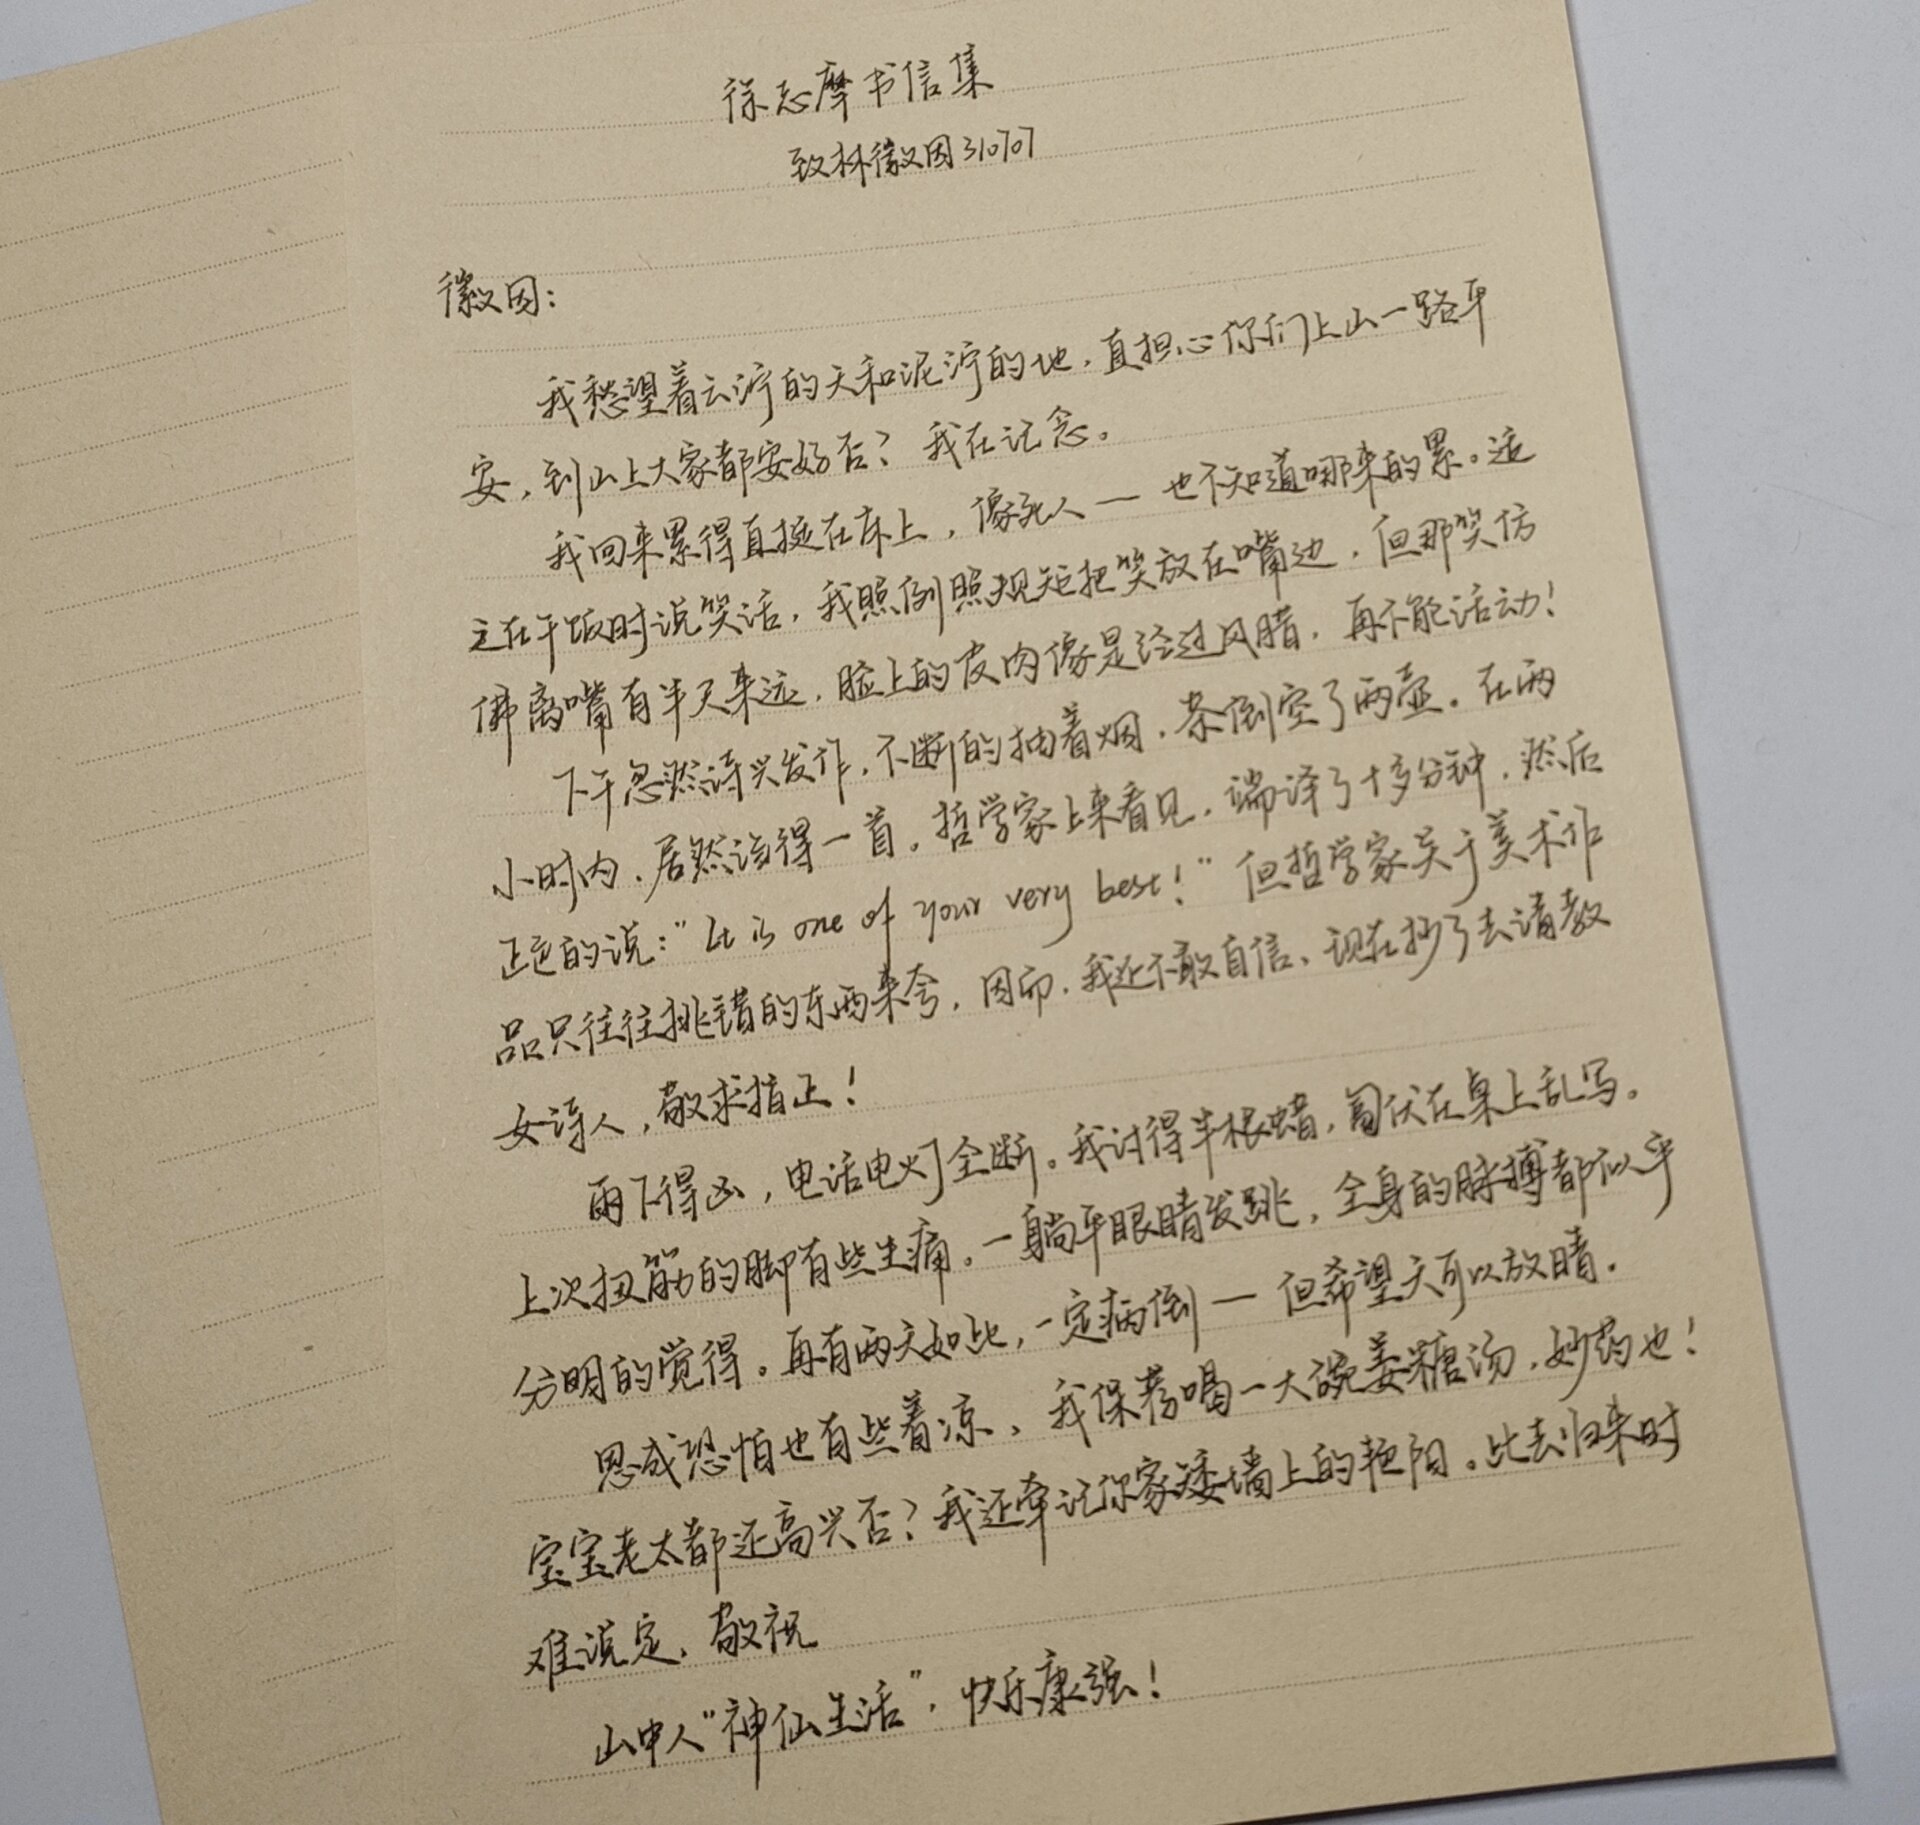 徐志摩书信集
致林徽因310707
徽因：
我愁望着云泞的天和泥泞的地，直担心你们上山一路平
安，到山上大家都安好否？我在记念。
我回来累得直挺在床上，像死人——也不知道哪来的累。适
之在午饭时说笑话，我照例照规矩把笑放在嘴边，但那笑仿
佛离嘴有半尺来远，脸上的皮肉像是经过风腊，再不能活动！
下午忽然诗兴发作，不断的抽着烟，茶倒空了两壶。在两
小时内，居然诌得一首。哲学家上来看见，端详了十多分钟，然后
正色的说："It is one of your very best！"但哲学家关于美术作
品只往往挑错的东西来夸，因而，我还不敢自信、现在抄了去请教
女诗人，敬求指正！
雨下得凶，电话电灯全断。我讨得半根蜡，匍伏在桌上乱写。
上次扭筋的脚有些生痛。一躺平眼睛发跳，全身的脉搏都似乎
分明的觉得。再有两天如此，一定病倒——但希望天可以放晴。
思成恐怕也有些着凉，我保荐喝一大碗姜糖汤，妙药也！
宝宝老太都还高兴否？我还牵记你家矮墙上的艳阳。此去归来时
难说定，敬祝
山中人"神仙生活"，快乐康强！